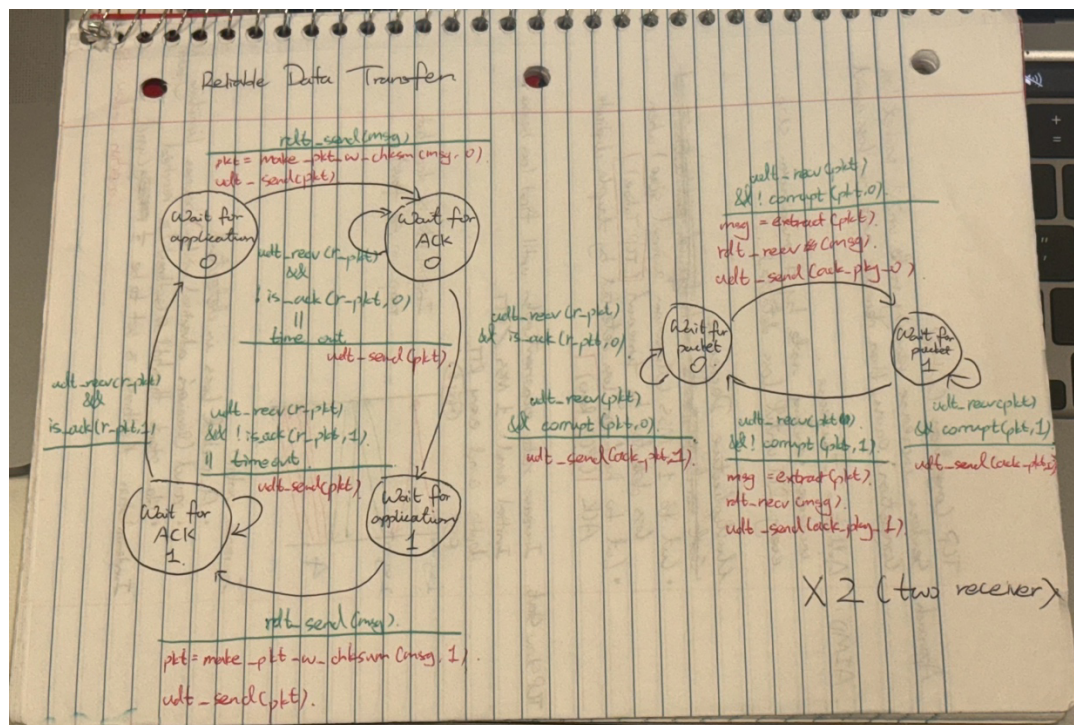 Reliable Data Transfer
rdt_send(msg)
pkt = make_pkt_w_chksm(msg, 0)
udt_send(pkt)
Wait for
application
0
Wait for
ACK
0
udt_recv(r_pkt)
&&
! is_ack(r_pkt, 0)
||
time out
udt_send(pkt).
udt_recv(r_pkt)
&&
is_ack(r_pkt, 1)
udt_recv(r_pkt)
&& ! is_ack(r_pkt, 1).
|| timeout
udt_send(pkt)
Wait for
ACK
1.
Wait for
application
1
rdt_send(msg).
pkt = make_pkt_w_chksum(msg, 1).
udt_send(pkt).
udt_recv(pkt)
&& ! corrupt(pkt,0)
msg = extract(pkt).
rdt_recv (msg).
udt_send(ack_pkg_0)
udt_recv(r_pkt)
&& is_ack(r_pkt,0)
Wait for
packet
0.
Wait for
packet
1
udt_recv(pkt)
&& corrupt(pkt,0)
udt_send(ack_pkt,1)
udt_recv(pkt)
&& ! corrupt(pkt, 1)
msg = extract(pkt).
rdt_recv(msg).
udt_send(ack_pkg_1)
udt_recv(pkt)
&& corrupt(pkt,1)
udt_send(ack_pkt,
X 2 (two receiver)